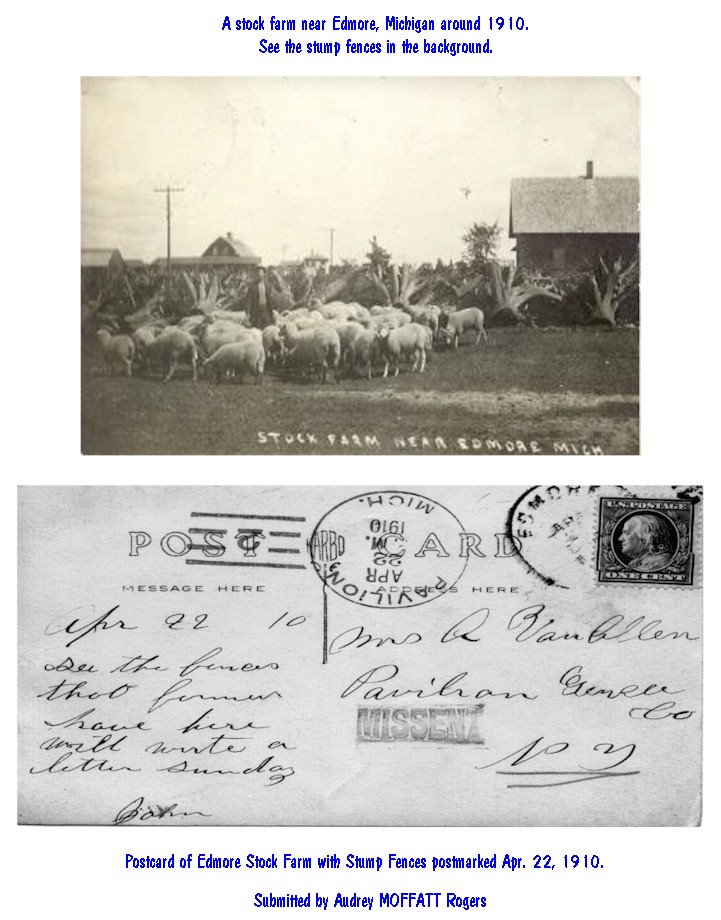 A stock farm near Edmore, Michigan around 1910.
See the stump fences in the background.
STOCK FARM NEAR EDMORE MICH
POST CARD
MESSAGE HERE
ADDRESS HERE
PAVILION
APR
22
M
1910
MICH.
EDMORE
U.S. POSTAGE
ONE CENT
Apr 22 10
see the fences
that farmers
have here
will write a
letter sunday
John
Mrs A VanAllen
Pavilion Genesee
Co
N Y
MISSENT
Postcard of Edmore Stock Farm with Stump Fences postmarked Apr. 22, 1910.
Submitted by Audrey MOFFATT Rogers